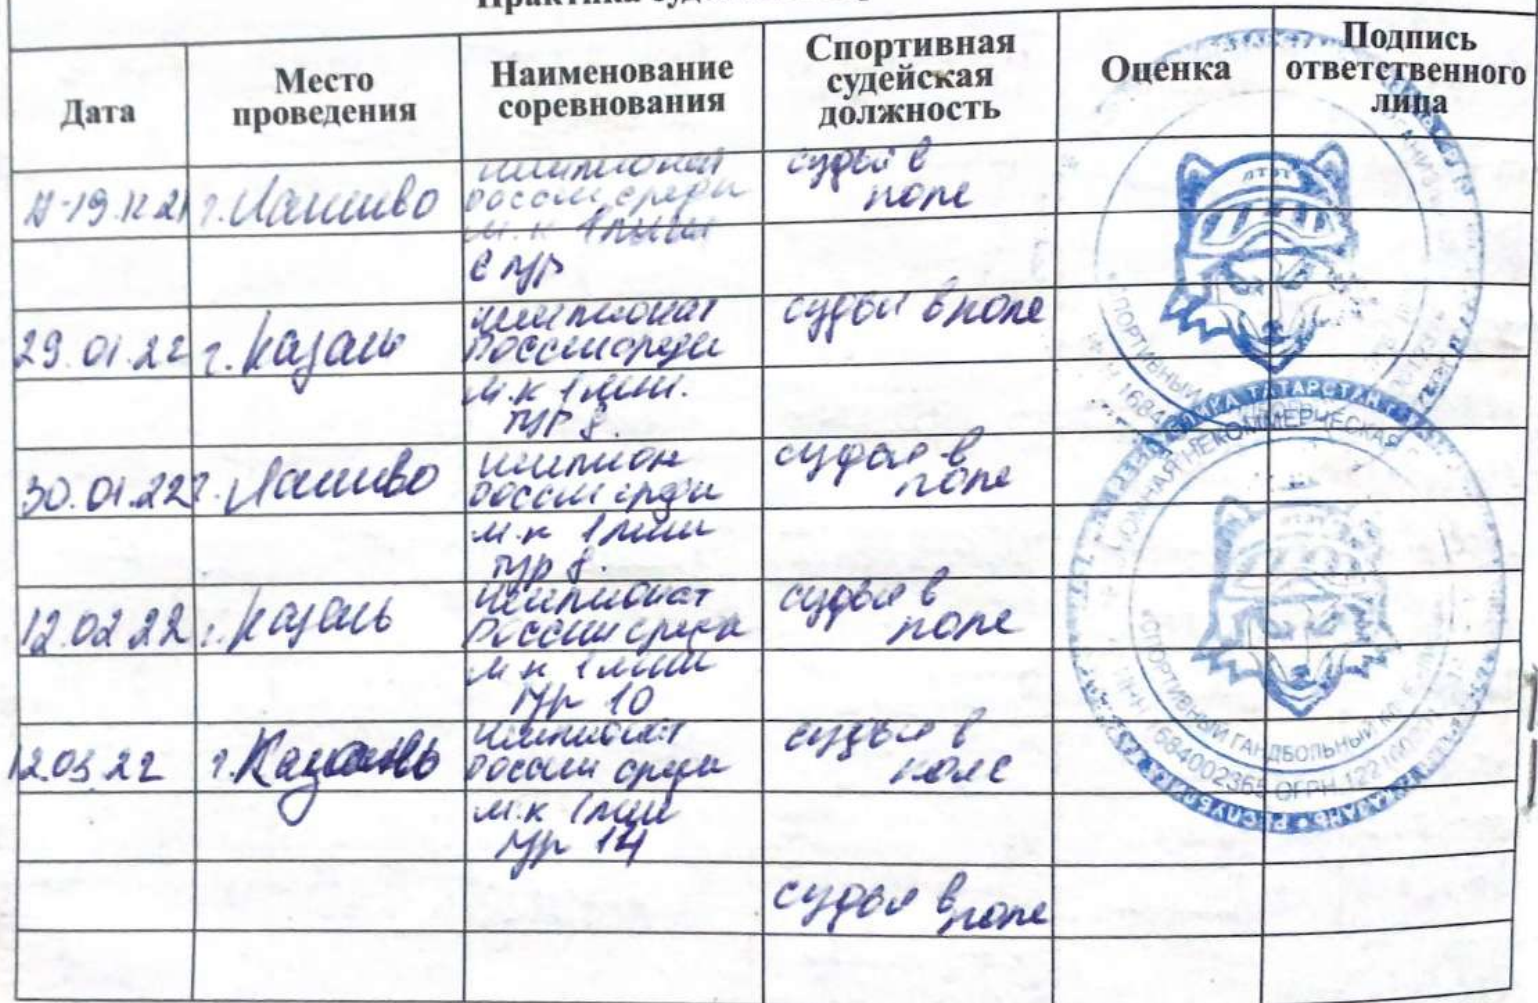 Дата
Место
проведения
Наименование
соревнования
Спортивная
судейская
должность
Оценка
Подпись
ответственного
лица
г. Лаишево
чемпионат
россии среди
м.к 1 лиги
6 тур
судья в
поле
29.01.22
г. Казань
чемпионат
России среди
м.к 1 лиги.
тур 8.
судья в поле
30.01.22
г. Лаишево
чемпион
россии среди
м.к 1 лиги
тур 8.
судья в
поле
12.02.22
г. Казань
чемпионат
России среди
м.к 1 лиги
тур 10
судья в
поле
12.03.22
г. Казань
чемпионат
россии среди
м.к 1 лиги
тур 14
судья в
поле
судья в поле
СПОРТИВНЫЙ
ТАТАРСТАН
НЕКОММЕРЧЕСКАЯ
СПОРТИВНЫЙ ГАНДБОЛЬНЫЙ
ИНН 1684002365 ОГРН